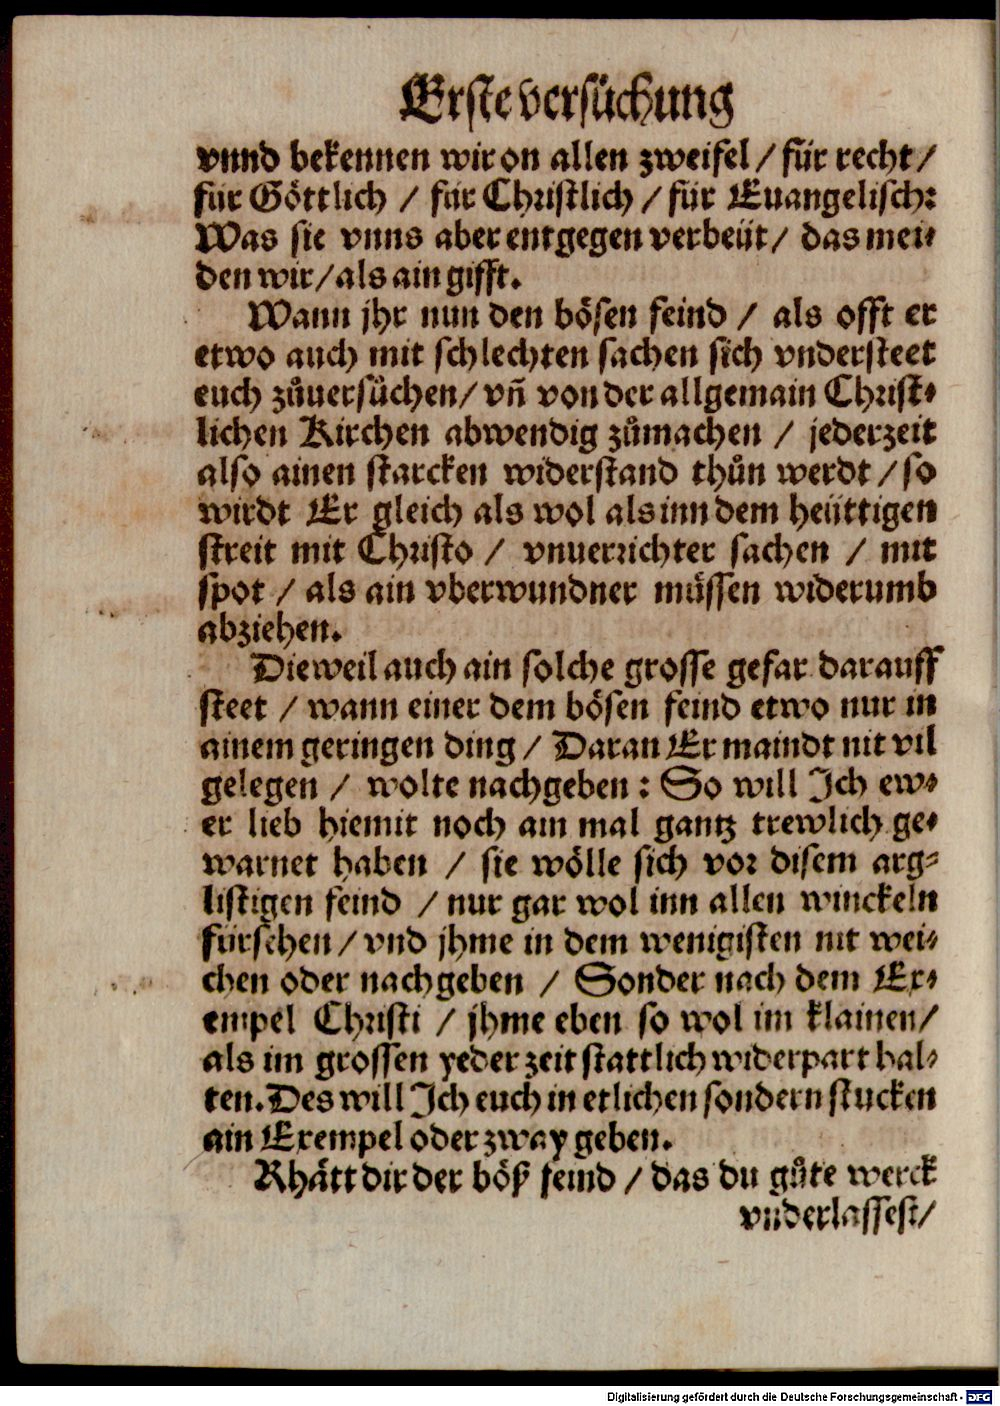 Erste versůchung
vnnd bekennen wir on allen zweifel / für recht /
für Göttlich / für Christlich / für Euangelisch:
Was sie vnns aber entgegen verbeüt / das mei-
den wir / als ain gifft.
Wann jhr nun den bösen feind / als offt er
etwo auch mit schlechten sachen sich vndersteet
euch zůuersůchen / vñ von der allgemain Christ-
lichen Kirchen abwendig zůmachen / jederzeit
also ainen starcken widerstand thůn werdt / so
wirdt Er gleich als wol als inn dem heüttigen
streit mit Christo / vnuerrichter sachen / mit
spot / als ain vberwundner müssen widerumb
abziehen.
Dieweil auch ain solche grosse gefar darauff
steet / wann einer dem bösen feind etwo nur in
ainem geringen ding / Daran Er maindt nit vil
gelegen / wolte nachgeben: So will Ich ew-
er lieb hiemit noch ain mal gantz trewlich ge-
warnet haben / sie wölle sich vor disem arg-
listigen feind / nur gar wol inn allen winckeln
fürsehen / vnd jhme in dem wenigisten nit wei-
chen oder nachgeben / Sonder nach dem Ex-
empel Christi / jhme eben so wol im klainen /
als im grossen yeder zeit stattlich widerpart hal-
ten. Des will Ich euch in etlichen sondern stucken
ain Exempel oder zway geben.
Rhätt dir der böß feind / das du gůte werck
vnderlassest /
Digitalisierung gefördert durch die Deutsche Forschungsgemeinschaft - DFG